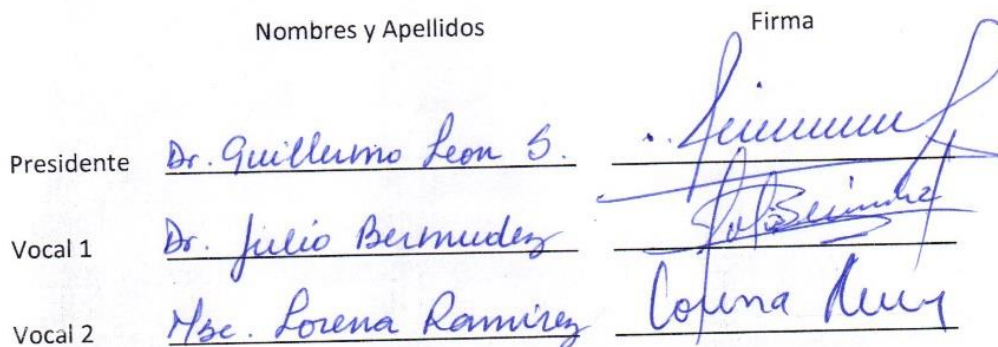 Nombres y Apellidos Firma
Presidente Dr. Guillermo Leon S.
Vocal 1 Dr. Julio Bermudez
Vocal 2 Msc. Lorena Ramirez Lorena